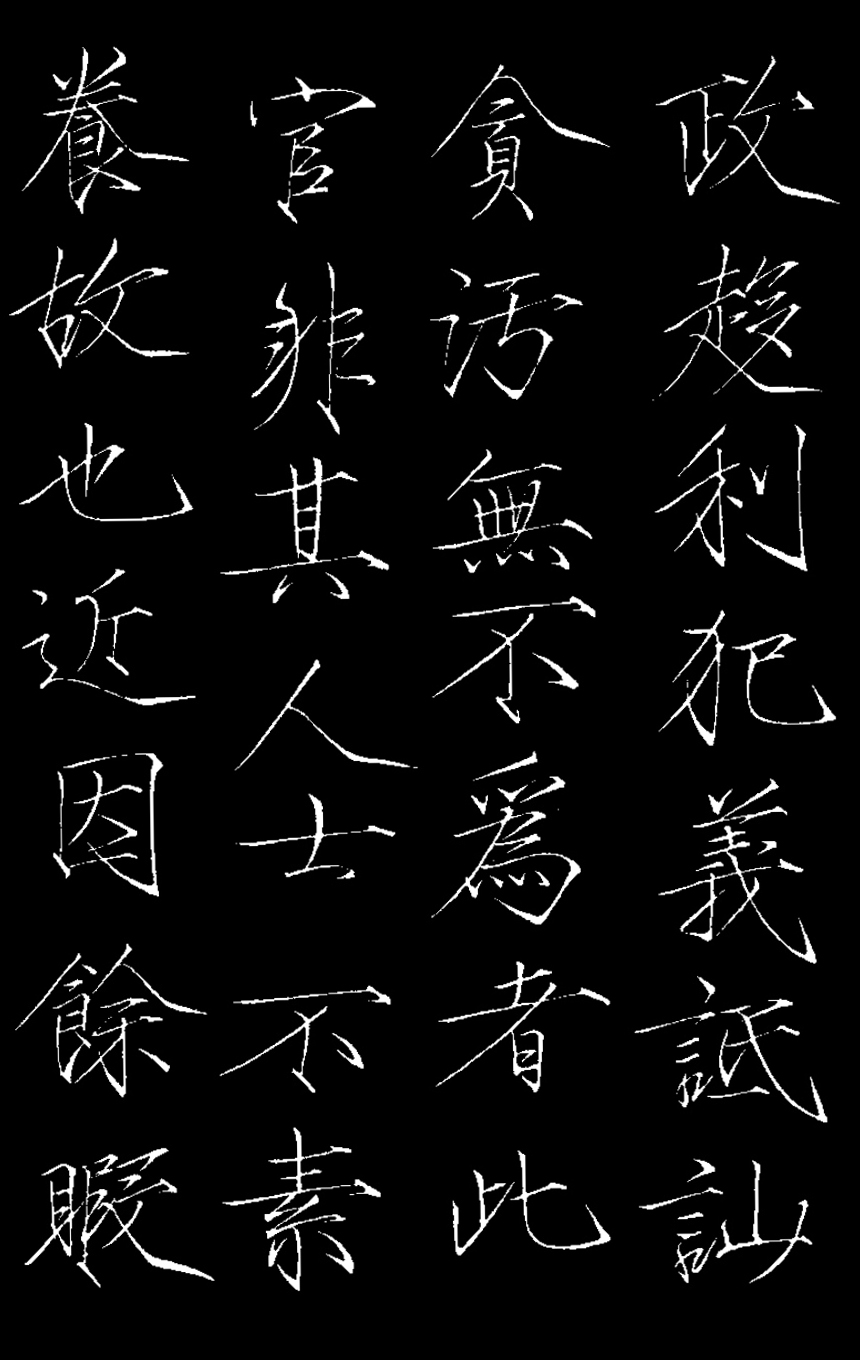 政趍利犯義詆訕
貪污無不為者此
官非其人士不素
養故也近因餘暇